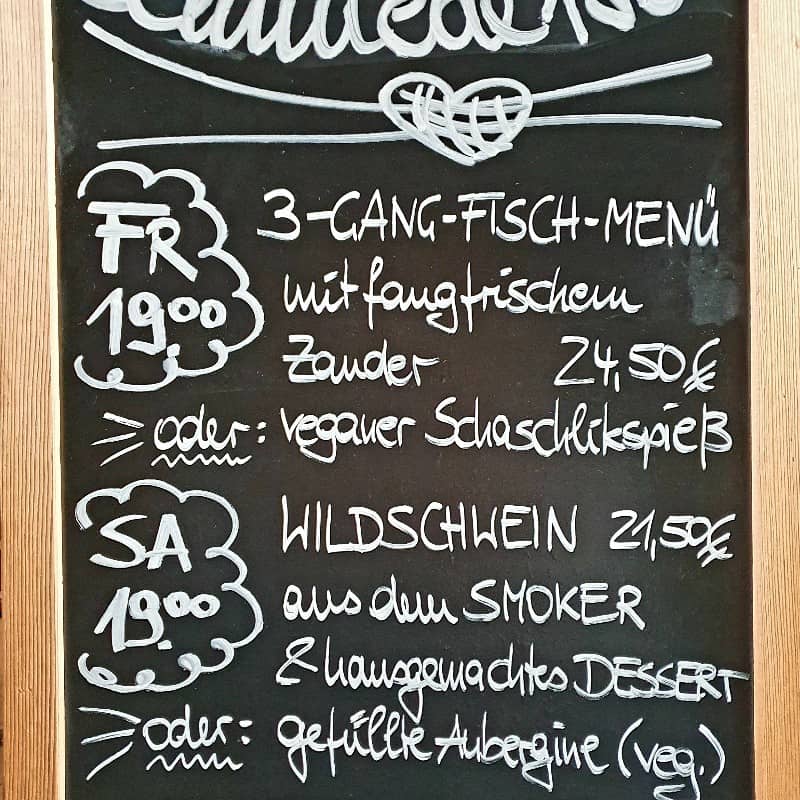 FR
19.00
3-GANG-FISCH-MENÜ
mit fangfrischem
Zander 24,50€
oder: veganer Schaschlikspieß
SA
19.00
WILDSCHWEIN 21,50€
aus dem SMOKER
& hausgemachtes DESSERT
oder: gefüllte Aubergine (veg.)